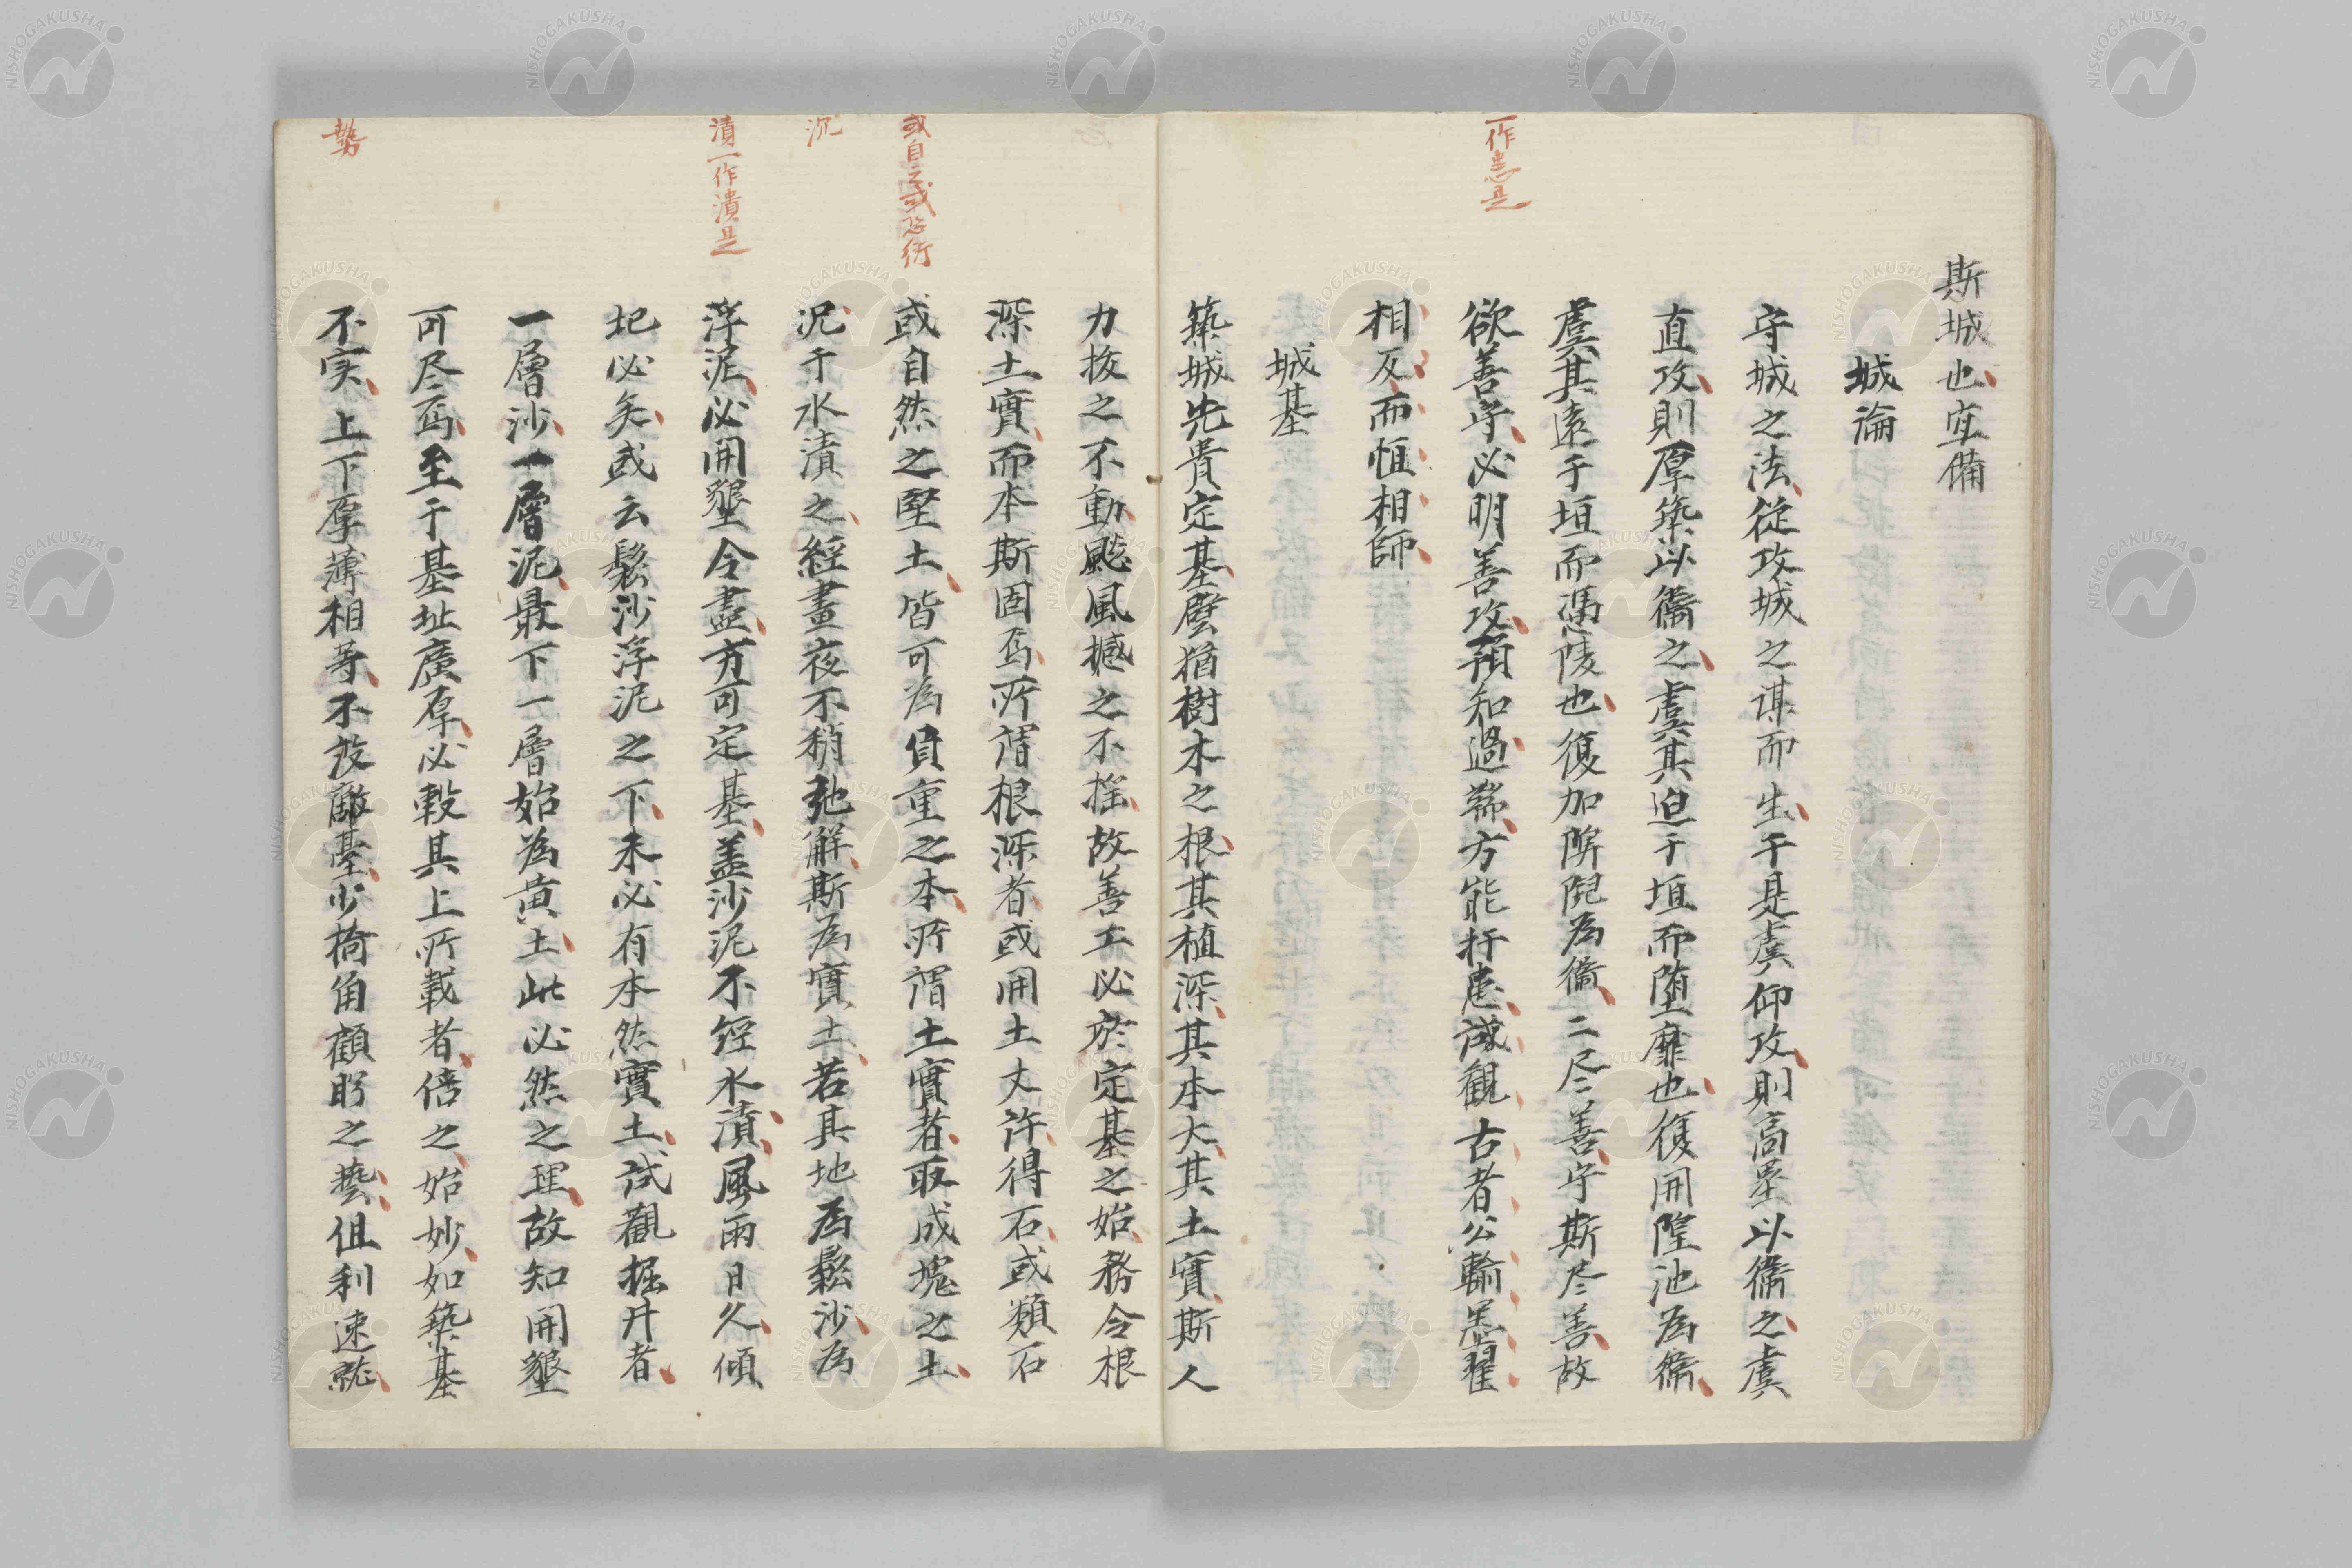 斯城也宜備
城論
守城之法從攻城之謀而生于是虞仰攻則高壘以衞之虞
直攻則厚築以衞之虞其迫于垣而堕靡也復開隍池為衞
虞其遠于垣而憑陵也復加陴隉為衞二尽善守斯尽善故
一作恚是
欲善守必明善攻預知過端方能扞患誠観古者公輸墨翟
相反而恒相師
城基
築城先貴定基譬猶樹木之根其植深其本大其土實斯人
力拔之不動颱風撼之不揺故善工必於定基之始務令根
深土實而本斯固焉所謂根深者或開土丈許得石或類石
或自之或恐衍
或自然之堅土皆可為負重之本所謂土實者取成塊之土
沉
況于水漬之經晝夜不稍弛解斯為實土若其地為鬆沙為
漬一作潰是
浮泥必開墾令盡方可定基盖沙泥不經水漬風雨日久傾
圮必矣或云鬆沙浮泥之下未必有本然實土試觀掘井者
一層沙一層泥最下一層始為黄土此必然之理故知開墾
可尽焉至于基址廣厚必較其上所載者倍之始妙如築基
勢
不実上下厚薄相等不設敵基少椅角顧盼之藝但利速就
NISHOGAKUSHA